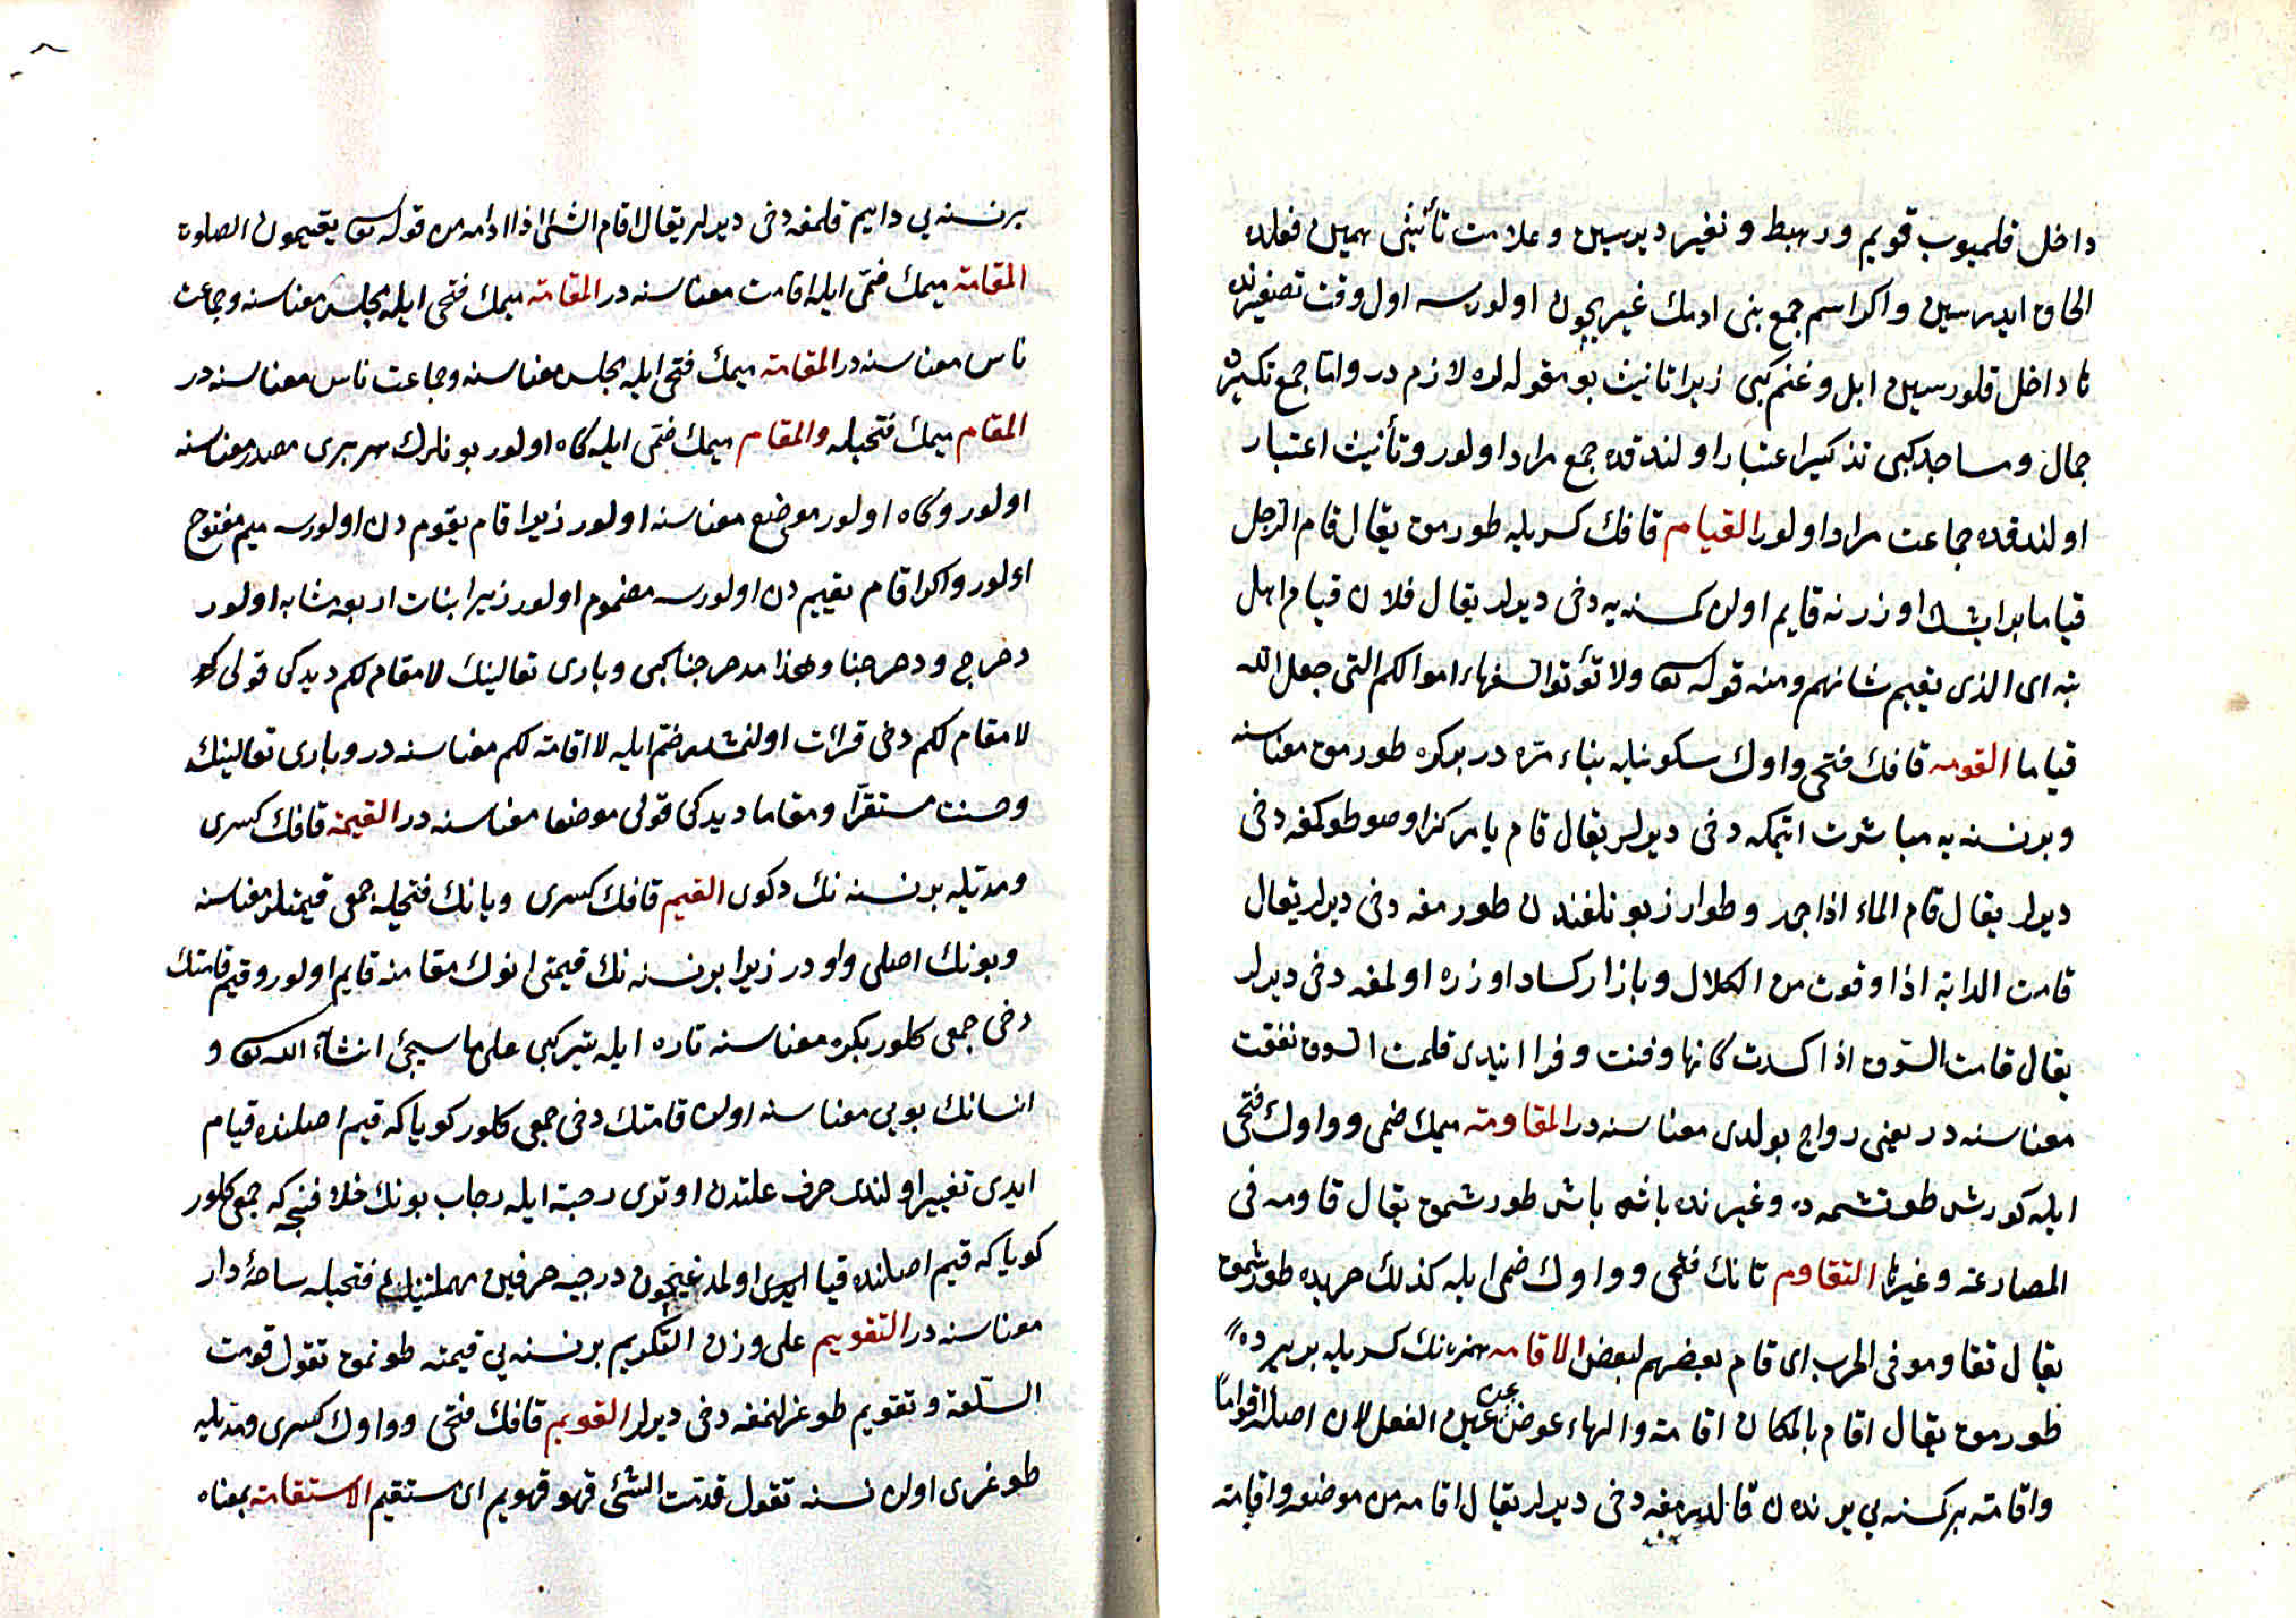 داخل قلميوب قويم ورهيط ونفير ديرسين وعلامت تأنيثى همين فعلده
الحاق ايدرسين واكر اسم جمع بنى ادمك غيريچون اولورسه اول وقت تصغيرنده
تا داخل قلورسين ابل وغنم كبى زيرا تانيث بو مقوله لره لازم در واما جمع تكسيرك
جمال ومساجد كبى تذكير اعتبار اولندقده جمع مراد اولور وتأنيث اعتبار
اولندقده جماعت مراد اولور القيام قافك كسريله طورمق يقال قام الرجل
قياما بر ايشك اوزرنه قايم اولن كمسنه يه دخى ديرلر يقال فلان قيام اهل
بيته اى الذى يقيم شانهم ومنه قوله تعا ولا تؤتوا السفهاء اموالكم التى جعل الله
قياما القومه قافك فتحى واوك سكونيله بناء مرّه در بركره طورمق معناسنه
وبر نسنه يه مباشرت ايتمكه دخى ديرلر يقال قام يامر كذا وصو طوكمغه دخى
ديرلر يقال قام الماء اذا جمد وطوار زبونلغندن طورمغه دخى ديرلر يقال
قامت الدابة اذا وقفت من الكلال وبازار كساد اوزره اولمغه دخى ديرلر
يقال قامت السوق اذا كسدت كانها وقفت وفرا ايتدى قامت السوق نفقت
معناسنه در يعنى رواج بولدى معناسنه در المقاومة ميمك ضمى وواوك فتحى
ايله كورش طوتشمه ده وغيرنده باشه باش طورشمق يقال قاومه فى
المصارعة وغيرها التقاوم تانك فتحى وواوك ضمى ايله كذلك حربده طورشمق
يقال تقاوموا فى الحرب اى قام بعضهم لبعض الاقامه همزه نك كسريله بر يرده
طورمق يقال اقام بالمكان اقامة والهاء عوض عن عين الفعل لان اصله اقواماً
واقامة بر كمسنه يى يرندن قالدرمغه دخى ديرلر يقال اقامه من موضعه واقامة
بر نسنه يى دايم قلمغه دخى ديرلر يقال اقام الشئ اذا ادامه من قوله تعا يقيمون الصلوة
المقامة ميمك ضمّى ايله اقامت معناسنه در المقامة ميمك فتحى ايله مجلس معناسنه وجماعت
ناس معناسنه در المقامة ميمك فتحى ايله مجلس معناسنه وجماعت ناس معناسنه در
المقام ميمك فتحيله والمقام ميمك ضمّى ايله كاه اولور بونلرك هر برى مصدر معناسنه
اولور وكاه اولور موضع معناسنه اولور زيرا قام يقوم دن اولورسه ميم مفتوح
اولور واكر اقام يقيم دن اولورسه مضموم اولور زيرا بنات اربعه مشابه اولور
دحرج ودحرجنا وهذا مدحرجنا كبى وبارى تعالينك لا مقام لكم ديدكى قولى كه
لا مقام لكم دخى قرائت اولنمشدر ضم ايله لا اقامة لكم معناسنه در وبارى تعالينك
وحسنت مستقرّا ومقاما ديدكى قولى موضعا معناسنه در القيمة قافك كسرى
ومدّيله بر نسنه نك دكرى القيم قافك كسرى ويانك فتحيله جمعى قيمتلر معناسنه
وبونك اصلى واو در زيرا بر نسنه نك قيمتى انوك مقامنه قايم اولور وقيم قامتك
دخى جمعى كلور بكره معناسنه تاره ايله تير كبى على ما سيجئ انشاء الله تعا و
انسانك بويى معناسنه اولن قامتك دخى جمعى كلور كويا كه قيم اصلنده قيام
ايدى تغيير اولندى حرف علتدن اوترى رحبة ايله رحاب بونك خلافنجه كه جمعى كلور
كويا كه قيم اصلنده قيام ايدى اولدغيچون در رحبه حرفين مهملتينك فتحيله ساحهٔ دار
معناسنه در التقويم على وزن التكريم بر نسنه يى قيمته طوتمق تقول قومت
السّلعة وتقويم طوغرلتمغه دخى ديرلر القويم قافك فتحى وواوك كسرى ومدّيله
طوغرى اولن نسنه تقول قومت الشئ فهو قويم اى مستقيم الاستقامة بمعناه